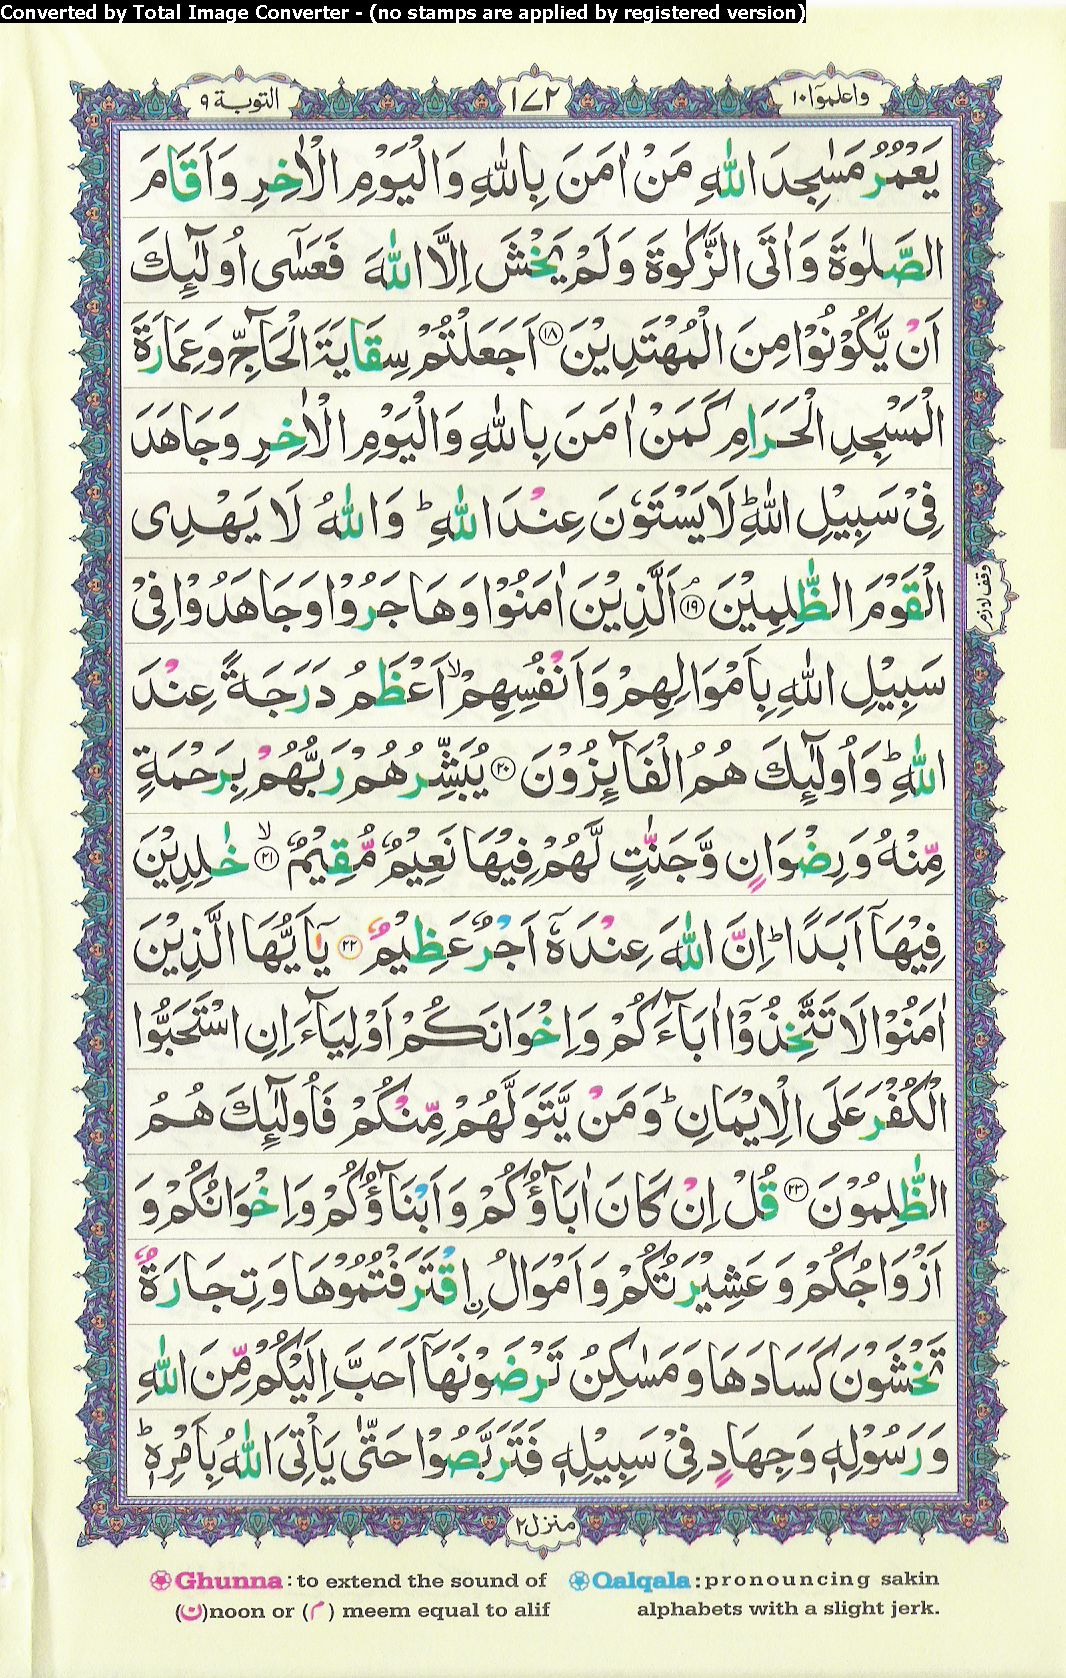 Converted by Total Image Converter - (no stamps are applied by registered version)
واعلموٓا١٠
١٧٢
التوبة ٩
يَعْمُرُ مَسٰجِدَ اللّٰهِ مَنْ اٰمَنَ بِاللّٰهِ وَالْيَوْمِ الْاٰخِرِ وَاَقَامَ
الصَّلٰوةَ وَاٰتَى الزَّكٰوةَ وَلَمْ يَخْشَ اِلَّا اللّٰهَ فَعَسٰٓى اُولٰٓئِكَ
اَنْ يَّكُوْنُوْا مِنَ الْمُهْتَدِيْنَ ۱۸ اَجَعَلْتُمْ سِقَايَةَ الْحَآجِّ وَعِمَارَةَ
الْمَسْجِدِ الْحَرَامِ كَمَنْ اٰمَنَ بِاللّٰهِ وَالْيَوْمِ الْاٰخِرِ وَجَاهَدَ
فِيْ سَبِيْلِ اللّٰهِ ؕ لَا يَسْتَوٗنَ عِنْدَ اللّٰهِ ؕ وَاللّٰهُ لَا يَهْدِى
الْقَوْمَ الظّٰلِمِيْنَ ۘ ۱۹ اَلَّذِيْنَ اٰمَنُوْا وَهَاجَرُوْا وَجَاهَدُوْا فِيْ
وقف لازم
سَبِيْلِ اللّٰهِ بِاَمْوَالِهِمْ وَاَنْفُسِهِمْ ۙ اَعْظَمُ دَرَجَةً عِنْدَ
اللّٰهِ ؕ وَاُولٰٓئِكَ هُمُ الْفَآئِزُوْنَ ۲۰ يُبَشِّرُهُمْ رَبُّهُمْ بِرَحْمَةٍ
مِّنْهُ وَرِضْوَانٍ وَّجَنّٰتٍ لَّهُمْ فِيْهَا نَعِيْمٌ مُّقِيْمٌ ۙ ۲۱ خٰلِدِيْنَ
فِيْهَآ اَبَدًا ؕ اِنَّ اللّٰهَ عِنْدَهٗٓ اَجْرٌ عَظِيْمٌ ۲۲ يٰٓاَيُّهَا الَّذِيْنَ
اٰمَنُوْا لَا تَتَّخِذُوْٓا اٰبَآءَكُمْ وَاِخْوَانَكُمْ اَوْلِيَآءَ اِنِ اسْتَحَبُّوا
الْكُفْرَ عَلَى الْاِيْمَانِ ؕ وَمَنْ يَّتَوَلَّهُمْ مِّنْكُمْ فَاُولٰٓئِكَ هُمُ
الظّٰلِمُوْنَ ۲۳ قُلْ اِنْ كَانَ اٰبَآؤُكُمْ وَاَبْنَآؤُكُمْ وَاِخْوَانُكُمْ وَ
اَزْوَاجُكُمْ وَعَشِيْرَتُكُمْ وَاَمْوَالُ ۨاقْتَرَفْتُمُوْهَا وَتِجَارَةٌ
تَخْشَوْنَ كَسَادَهَا وَمَسٰكِنُ تَرْضَوْنَهَآ اَحَبَّ اِلَيْكُمْ مِّنَ اللّٰهِ
وَرَسُوْلِهٖ وَجِهَادٍ فِيْ سَبِيْلِهٖ فَتَرَبَّصُوْا حَتّٰى يَاْتِيَ اللّٰهُ بِاَمْرِهٖ ؕ
منزل٢
Ghunna: to extend the sound of
(ن)noon or (م) meem equal to alif
Qalqala: pronouncing sakin
alphabets with a slight jerk.